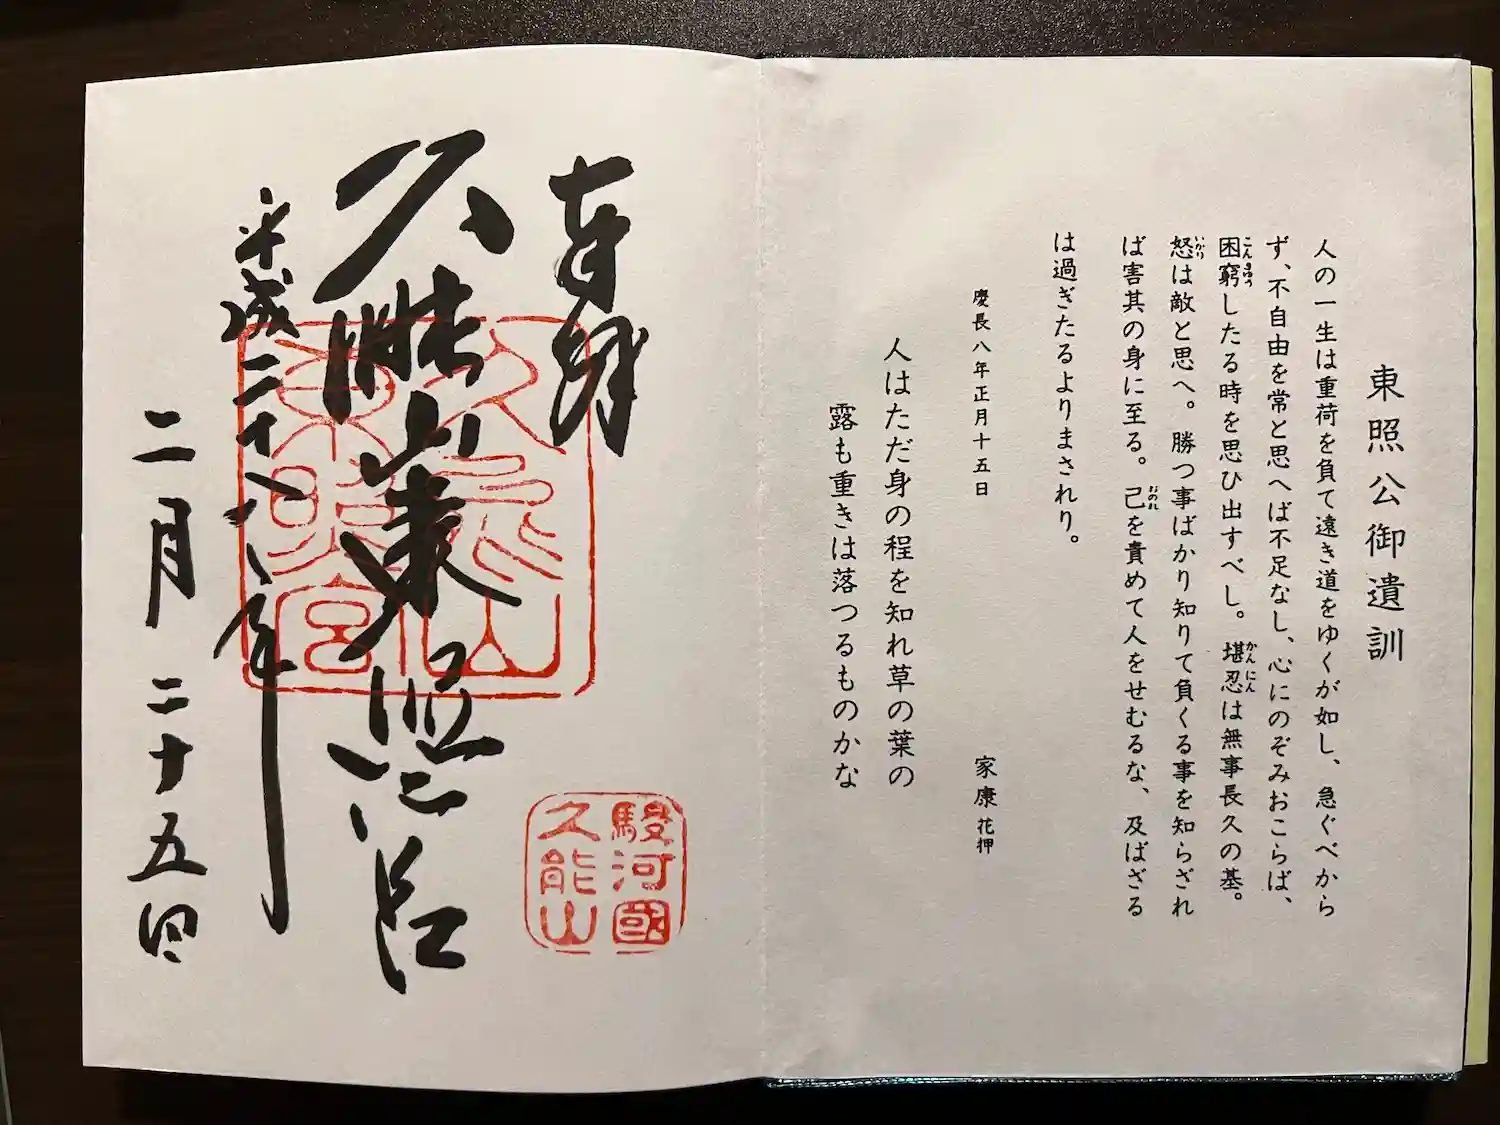 東照公御遺訓
人の一生は重荷を負て遠き道をゆくが如し、急ぐべから
ず、不自由を常と思へば不足なし、心にのぞみおこらば、
こんきゅう かんにん
困窮したる時を思ひ出すべし。堪忍は無事長久の基。
いかり
怒は敵と思へ。勝つ事ばかり知りて負くる事を知らざれ
おのれ
ば害其の身に至る。己を責めて人をせむるな、及ばざる
は過ぎたるよりまされり。
慶長八年正月十五日 家康 花押
人はただ身の程を知れ草の葉の
露も重きは落つるものかな
奉拝
駿河國
久能山
久能山東照宮
久能山
東照宮
平成二十八年
二月二十五日